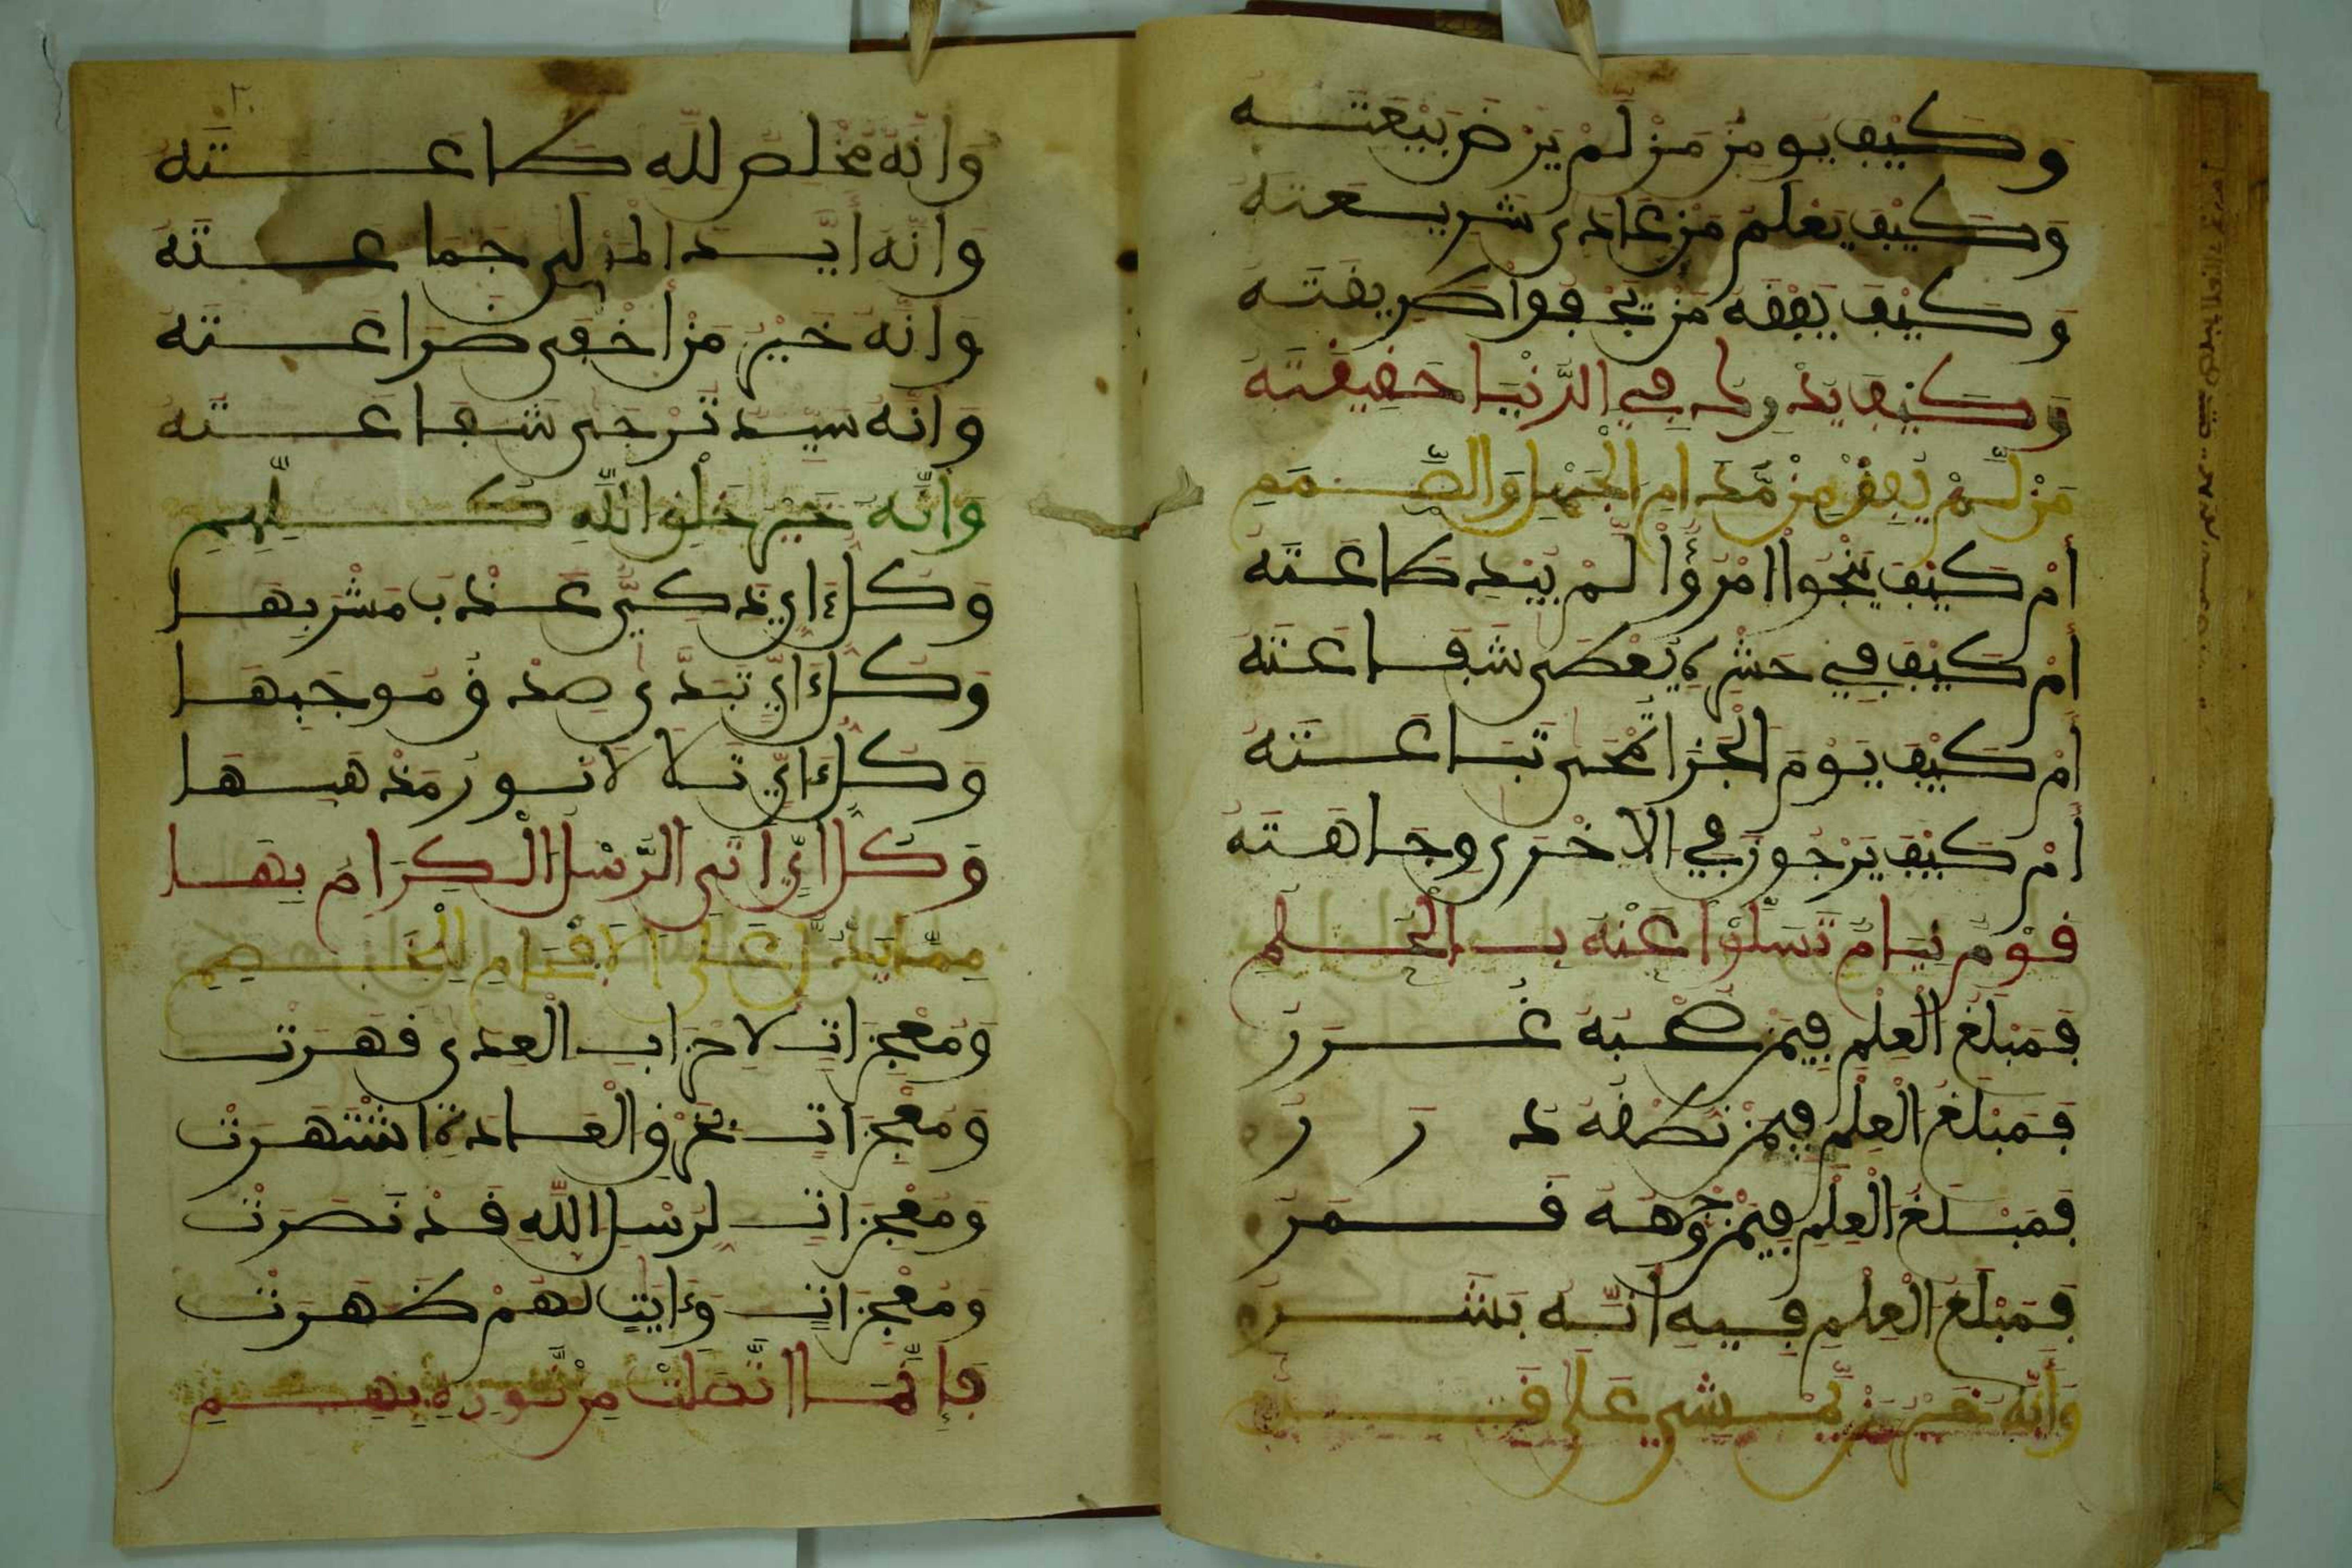 وَكَيْفَ يُومِنُ مَنْ لَمْ يَرْضَ بَيْعَتَهُ
وَكَيْفَ يَعْلَمُ مَنْ عَادَى شَرِيعَتَهُ
وَكَيْفَ يَفْقَهُ مَنْ يَجْفُوا طَرِيقَتَهُ
وَكَيْفَ يُدْرِكُ فِي الدُّنْيَا حَقِيقَتَهُ
مَنْ لَّمْ يُفِقْ مِنْ مُدَامِ الْجَهْلِ وَالصَّمَمِ
أَمْ كَيْفَ يَنْجُوا امْرُؤٌا لَمْ يُبْدِ طَاعَتَهُ
أَمْ كَيْفَ فِي حَشْرِهِ يُعْطَى شَفَاعَتَهُ
أَمْ كَيْفَ يَوْمَ الْجَزَا تُمْحَى تَبَاعَتُهُ
أَمْ كَيْفَ يَرْجُونَ فِي الْاخْرَى وَجَاهَتَهُ
قَوْمٌ نِيَامٌ تَسَلَّوْا عَنْهُ بِالْحُلُمِ
فَمَبْلَغُ الْعِلْمِ فِيمَنْ صَحْبُهُ غُرَرُ
فَمَبْلَغُ الْعِلْمِ فِيمَنْ نُطْقُهُ دُرَرُ
فَمَبْلَغُ الْعِلْمِ فِيمَنْ وَجْهُهُ قَمَرُ
فَمَبْلَغُ الْعِلْمِ فِيهِ أَنَّهُ بَشَرُ
وَأَنَّهُ خَيْرُ مَنْ يَمْشِي عَلَى قَدَمِ
وَأَنَّهُ مُخْلِصٌ لِلَّهِ طَاعَتَهُ
وَأَنَّهُ أَيَّدَ الْمَوْلَى جَمَاعَتَهُ
وَأَنَّهُ خَيْرُ مَنْ أَخْفَى ضَرَاعَتَهُ
وَأَنَّهُ سَيِّدٌ تُرْجَى شَفَاعَتُهُ
وَأَنَّهُ خَيْرُ خَلْقِ اللَّهِ كُلِّهِمِ
وَكُلُّ ءَايٍ زَكِيٍّ عَذْبُ مَشْرَبِهَا
وَكُلُّ ءَايٍ تَبَدَّى صِدْقُ مُوجَبِهَا
وَكُلُّ ءَايٍ تَلَالَا نُورُ مَذْهَبِهَا
وَكُلُّ ايٍ اتَى الرُّسْلُ الْكِرَامُ بِهَا
وَمُعْجِزَاتٍ لِاحْزَابِ الْعِدَى قَهَرَتْ
وَمُعْجِزَاتٍ بِخَرْقِ الْعَادَةِ اشْتَهَرَتْ
وَمُعْجِزَاتٍ لِرُسْلِ اللَّهِ قَدْ نَصَرَتْ
وَمُعْجِزَاتٍ وَءَايَاتٍ لَهُمْ ظَهَرَتْ
فَإِنَّمَا اتَّصَلَتْ مِنْ نُورِهِ بِهِمِ